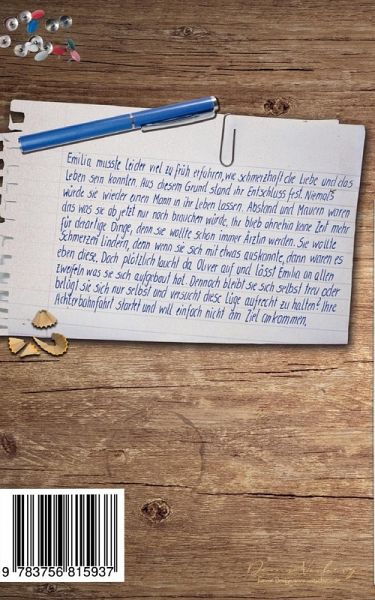 Emilia musste leider viel zu früh erfahren, wie schmerzhaft die Liebe und das
Leben sein konnten. Aus diesem Grund stand ihr Entschluss fest. Niemals
würde sie wieder einen Mann in ihr Leben lassen. Abstand und Mauern waren
das was sie ab jetzt nur noch brauchen würde. Ihr blieb ohnehin keine Zeit mehr
für derartige Dinge, denn sie wollte schon immer Ärztin werden. Sie wollte
Schmerzen lindern, denn wenn sie sich mit etwas auskannte, dann waren es
eben diese. Doch plötzlich taucht da Oliver auf und lässt Emilia an allen
zweifeln was sie sich aufgebaut hat. Dennoch bleibt sie sich selbst treu oder
belügt sie sich nur selbst und versucht diese Lüge aufrecht zu halten? Ihre
Achterbahnfahrt startet und will einfach nicht am Ziel ankommen.
9 783756 815937